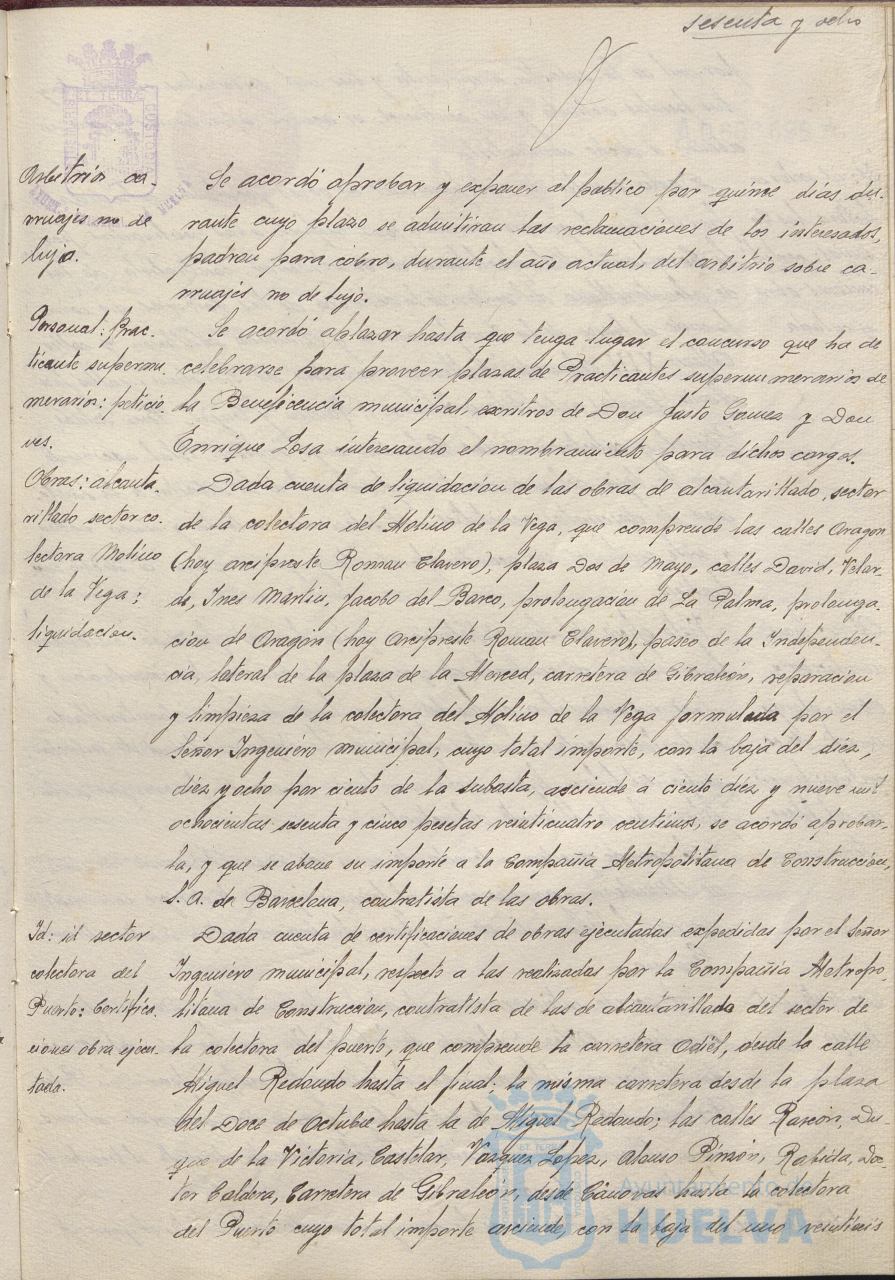 sesenta y ocho
Arbitrios ca-
rruajes no de
lujo.
Se acordó aprobar y exponer al público por quince dias du-
rante cuyo plazo se admitiran las reclamaciones de los interesados,
padron para cobro, durante el año actual, del arbitrio sobre ca-
rruajes no de lujo.
Personal: Prac-
ticante supernu-
merarios: peticio-
nes.
Se acordó aplazar hasta que tenga lugar el concurso que ha de
celebrarse para proveer plazas de Practicantes supernumerarios de
la Beneficencia municipal, escritos de Don Justo Gomez y Don
Enrique Losa interesando el nombramiento para dichos cargos.
Obras: alcanta-
rillado sector co-
lectora Molino
de la Vega:
liquidacion.
Dada cuenta de liquidacion de las obras de alcantarillado, sector
de la colectora del Molino de la Vega, que comprende las calles Aragon
(hoy arcipreste Roman Clavero), plaza Dos de Mayo, calles David, Velar-
de, Ines Martin, Jacobo del Barco, prolongacion de La Palma, prolonga-
cion de Aragón (hoy Arcipreste Roman Clavero), paseo de la Independen-
cia, lateral de la plaza de la Merced, carretera de Gibraleón, reparacion
y limpieza de la colectora del Molino de la Vega formulada por el
Señor Ingeniero municipal, cuyo total importe, con la baja del diez,
diez y ocho por ciento de la subasta, asciende á ciento diez y nueve mil
ochocientas sesenta y cinco pesetas veinticuatro centimos, se acordó aprobar-
la, y que se abone su importe a la Compañia Metropolitana de Construccion,
S. A. de Barcelona, contratista de las obras.
Id: id sector
colectora del
Puerto: Certifica-
ciones obra ejecu-
tada.
Dada cuenta de certificaciones de obras ejecutadas expedidas por el Señor
Ingeniero municipal, respecto a las realizadas por la Compañia Metropo-
litana de Construccion, contratista de las de alcantarillado del sector de
la colectora del puerto, que comprende la carretera Odiel, desde la calle
Miguel Redondo hasta el final: la misma carretera desde la plaza
del Doce de Octubre hasta la de Miguel Redondo; las calles Rascón, Du-
que de la Victoria, Castelar, Vazquez Lopez, Alonso Pinzón, Rabida, Doc-
tor Caldera, Carretera de Gibraleón, desde Cánovas hasta la colectora
del Puerto cuyo total importe asciende, con la baja del uno veintiseis
Ayuntamiento de
HUELVA